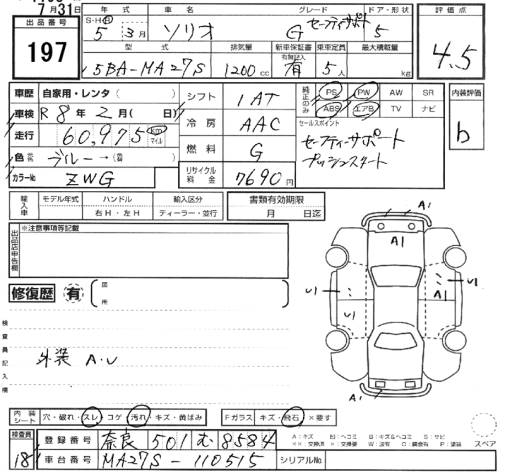 7月31日
出品番号
197
年式 車名 グレード ドア・形状
S・H
5年 3月 ソリオ G セーフティサポート 5
評価点
4.5
型式 排気量 新車保証書 乗車定員 最大積載量
有無記入
5BA-MA27S 1200cc 有 5人 kg
車歴 自家用・レンタ
車検 R8年2月( 日)
走行 60,975 km マイル
色 ブルー→( )
カラーNo ZWG
シフト 1AT
冷房 AAC
燃料 G
リサイクル料金 7690円
純正のみ PS PW AW SR
ABS エアB TV ナビ
セールスポイント
セーフティーサポート
プッシュスタート
内装評価
b
輸入車 モデル年式 ハンドル 輸入区分
右H・左H ディーラー・並行
書類有効期限
月 日迄
出品店申告欄
※注意事項等記載
修復歴 有
図所
検査員記入欄
外装 A.U
A1
A1
U1
A1
U1
A1
内装シート 穴・破れ・スレ・コゲ・汚れ・キズ・黄ばみ
Fガラス キズ・飛石 ×要す
検査員
18
登録番号 奈良 501 む 8584
車台番号 MA27S-110515 シリアルNo
A:キズ E:エクボ B:キズ&ヘコミ S:サビ
スペア